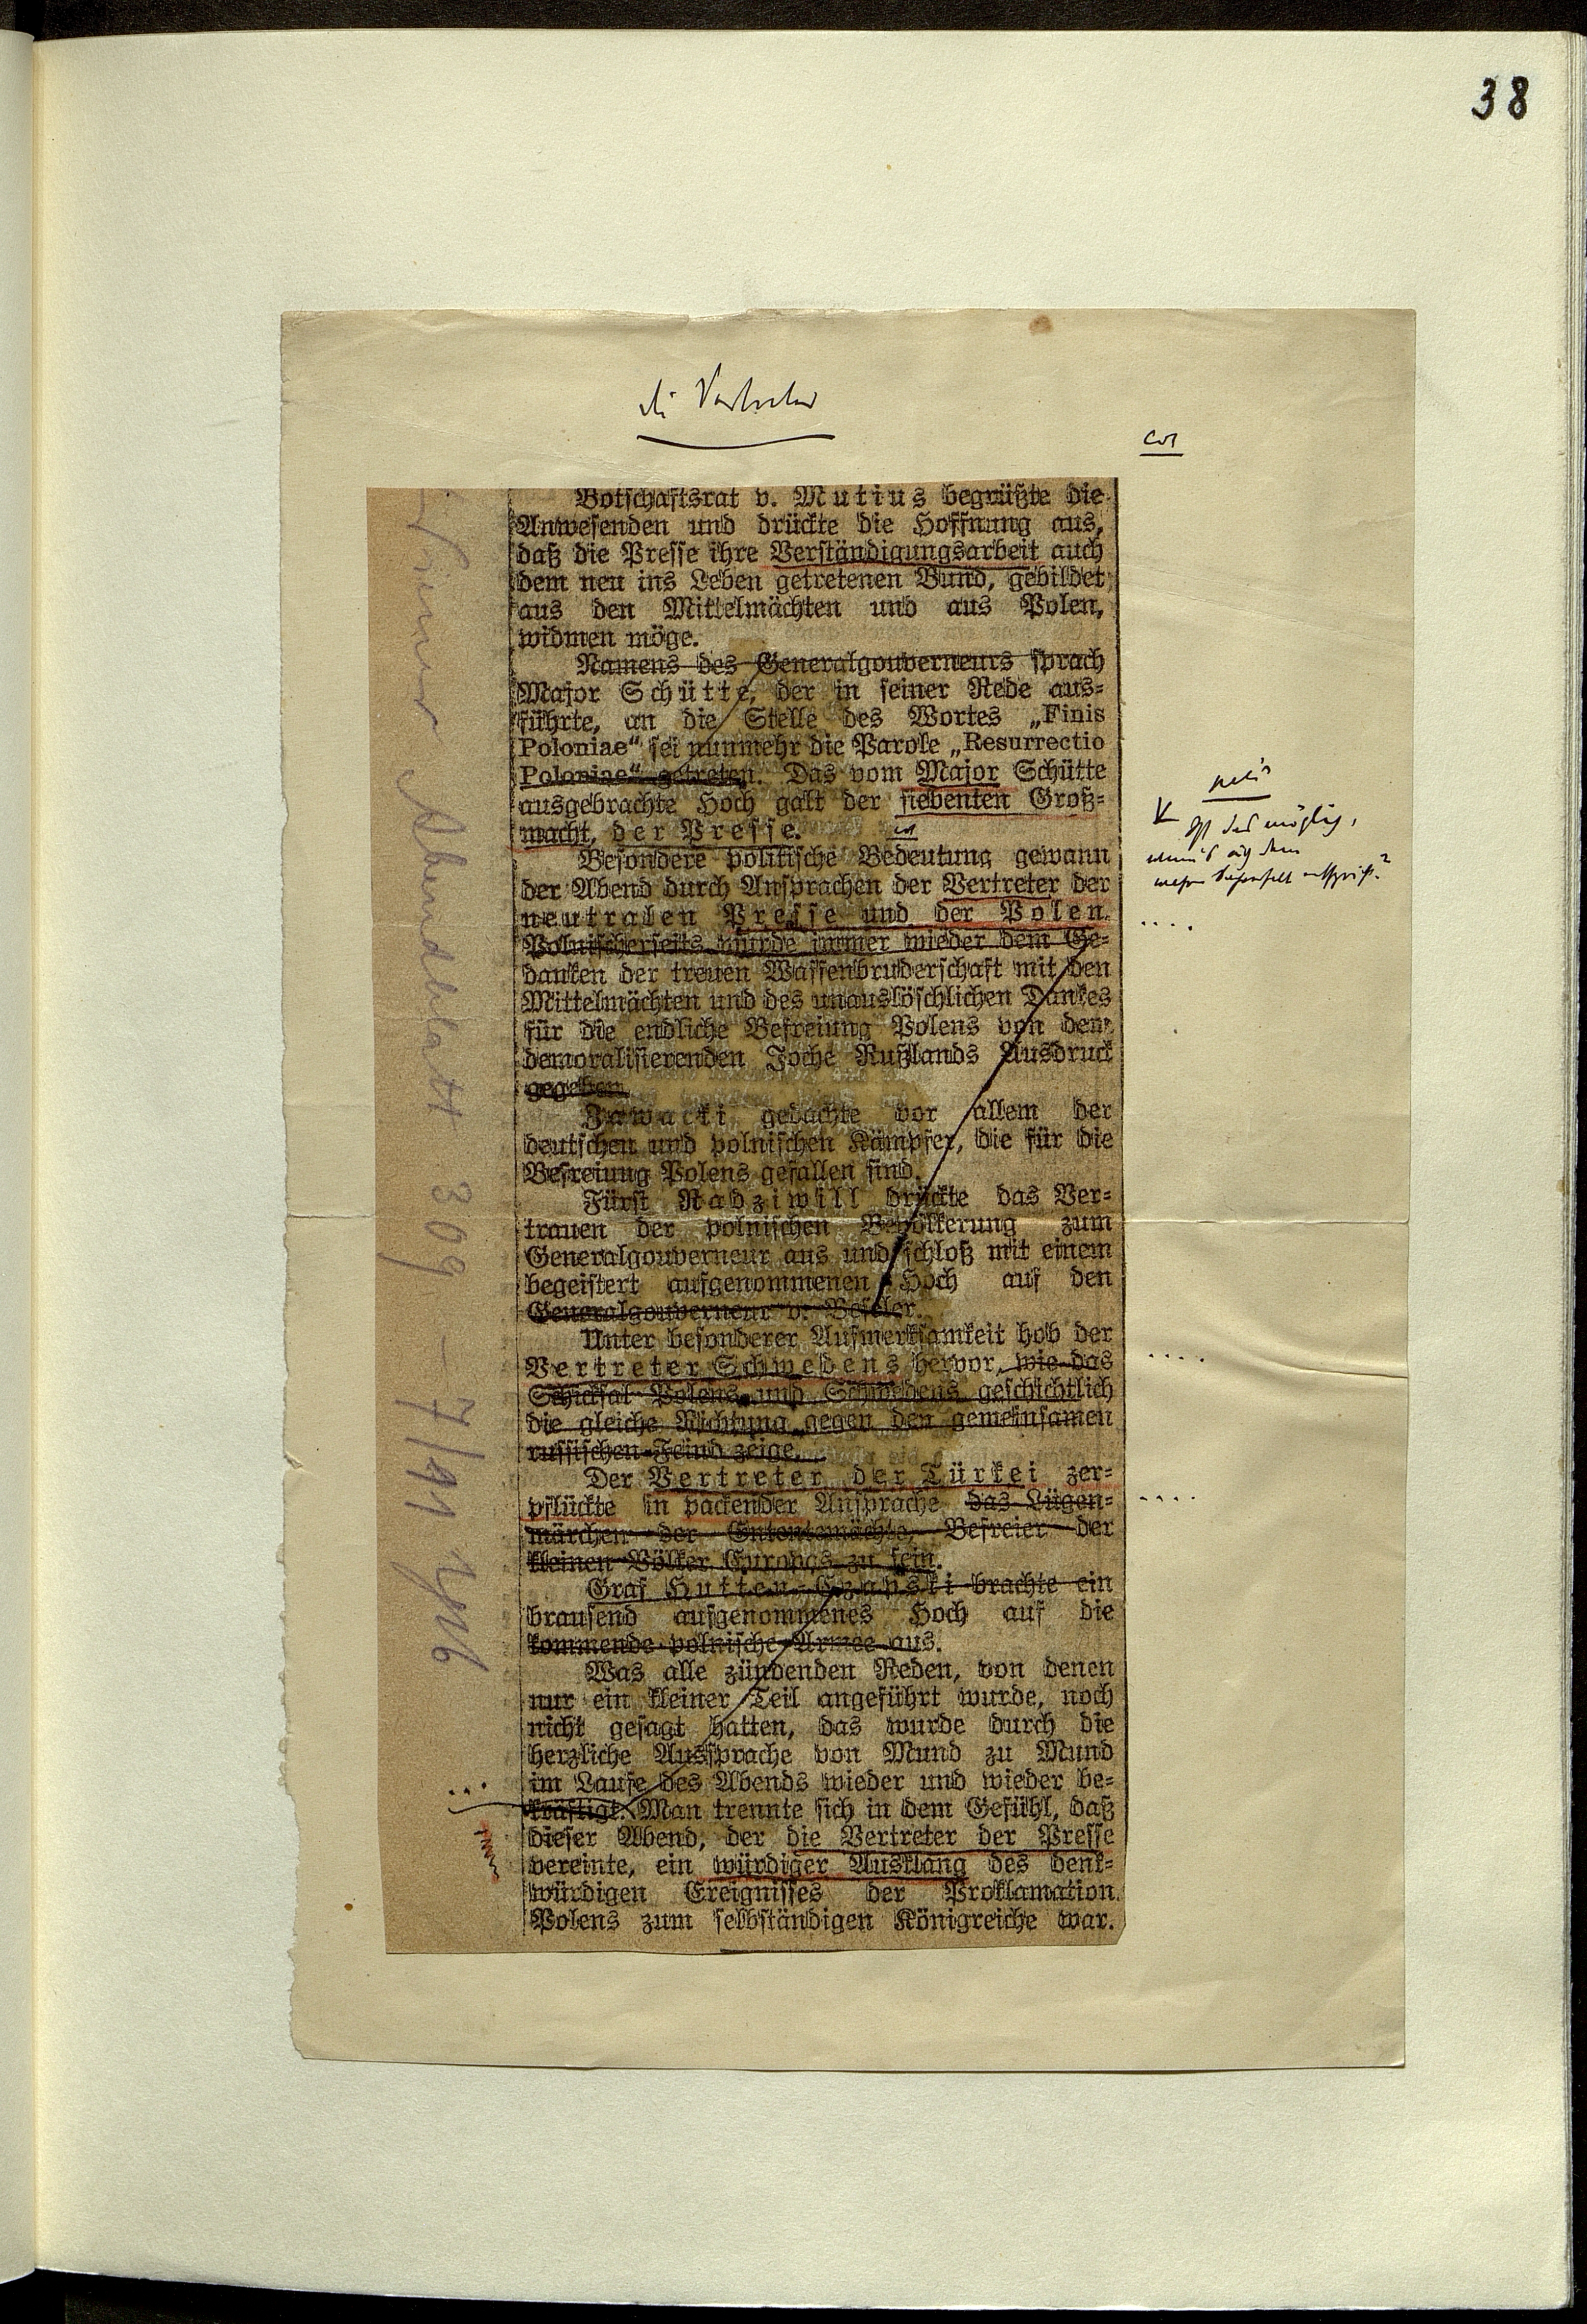 38
die Vertreter
cor
Botschaftsrat v. Mutius begrüßte die
Anwesenden und drückte die Hoffnung aus,
daß die Presse ihre Verständigungsarbeit auch
dem neu ins Leben getretenen Bund, gebildet
aus den Mittelmächten und aus Polen,
widmen möge.
Namens des Generalgouverneurs sprach
Major Schütte, der in seiner Rede aus-
führte, an die Stelle des Wortes „Finis
Poloniae“ sei nunmehr die Parole „Resurrectio
Poloniae“ getreten. Das vom Major Schütte
ausgebrachte Hoch galt der siebenten Groß-
macht, der Presse.
Besondere politische Bedeutung gewann
der Abend durch Ansprachen der Vertreter der
neutralen Presse und der Polen.
Polnischerseits wurde immer wieder dem Ge-
danken der treuen Waffenbruderschaft mit den
Mittelmächten und des unauslöschlichen Dankes
für die endliche Befreiung Polens von dem
demoralisierenden Joche Rußlands Ausdruck
gegeben.
Jawacki gedachte vor allem der
deutschen und polnischen Kämpfer, die für die
Befreiung Polens gefallen sind.
Fürst Radziwill drückte das Ver-
trauen der polnischen Bevölkerung zum
Generalgouverneur aus und schloß mit einem
begeistert aufgenommenen Hoch auf den
Generalgouverneur v. Beseler.
Unter besonderer Aufmerksamkeit hob der
Vertreter Schwedens hervor, wie das
Schicksal Polens und Schwedens geschichtlich
die gleiche Richtung gegen den gemeinsamen
russischen Feind zeige.
Der Vertreter der Türkei zer-
pflückte in packender Ansprache das Lügen-
märchen der Ententemächte, Befreier der
kleinen Völker Europas zu sein.
Graf Hutten-Czapski brachte ein
brausend aufgenommenes Hoch auf die
kommende polnische Armee aus.
Was alle zündenden Reden, von denen
nur ein kleiner Teil angeführt wurde, noch
nicht gesagt hatten, das wurde durch die
herzliche Aussprache von Mund zu Mund
im Laufe des Abends wieder und wieder be-
kräftigt. Man trennte sich in dem Gefühl, daß
dieser Abend, der die Vertreter der Presse
vereinte, ein würdiger Ausklang des denk-
würdigen Ereignisses der Proklamation
Polens zum selbständigen Königreiche war.
Wiener Abendblatt 309 – 7/11 1916
das möglich,